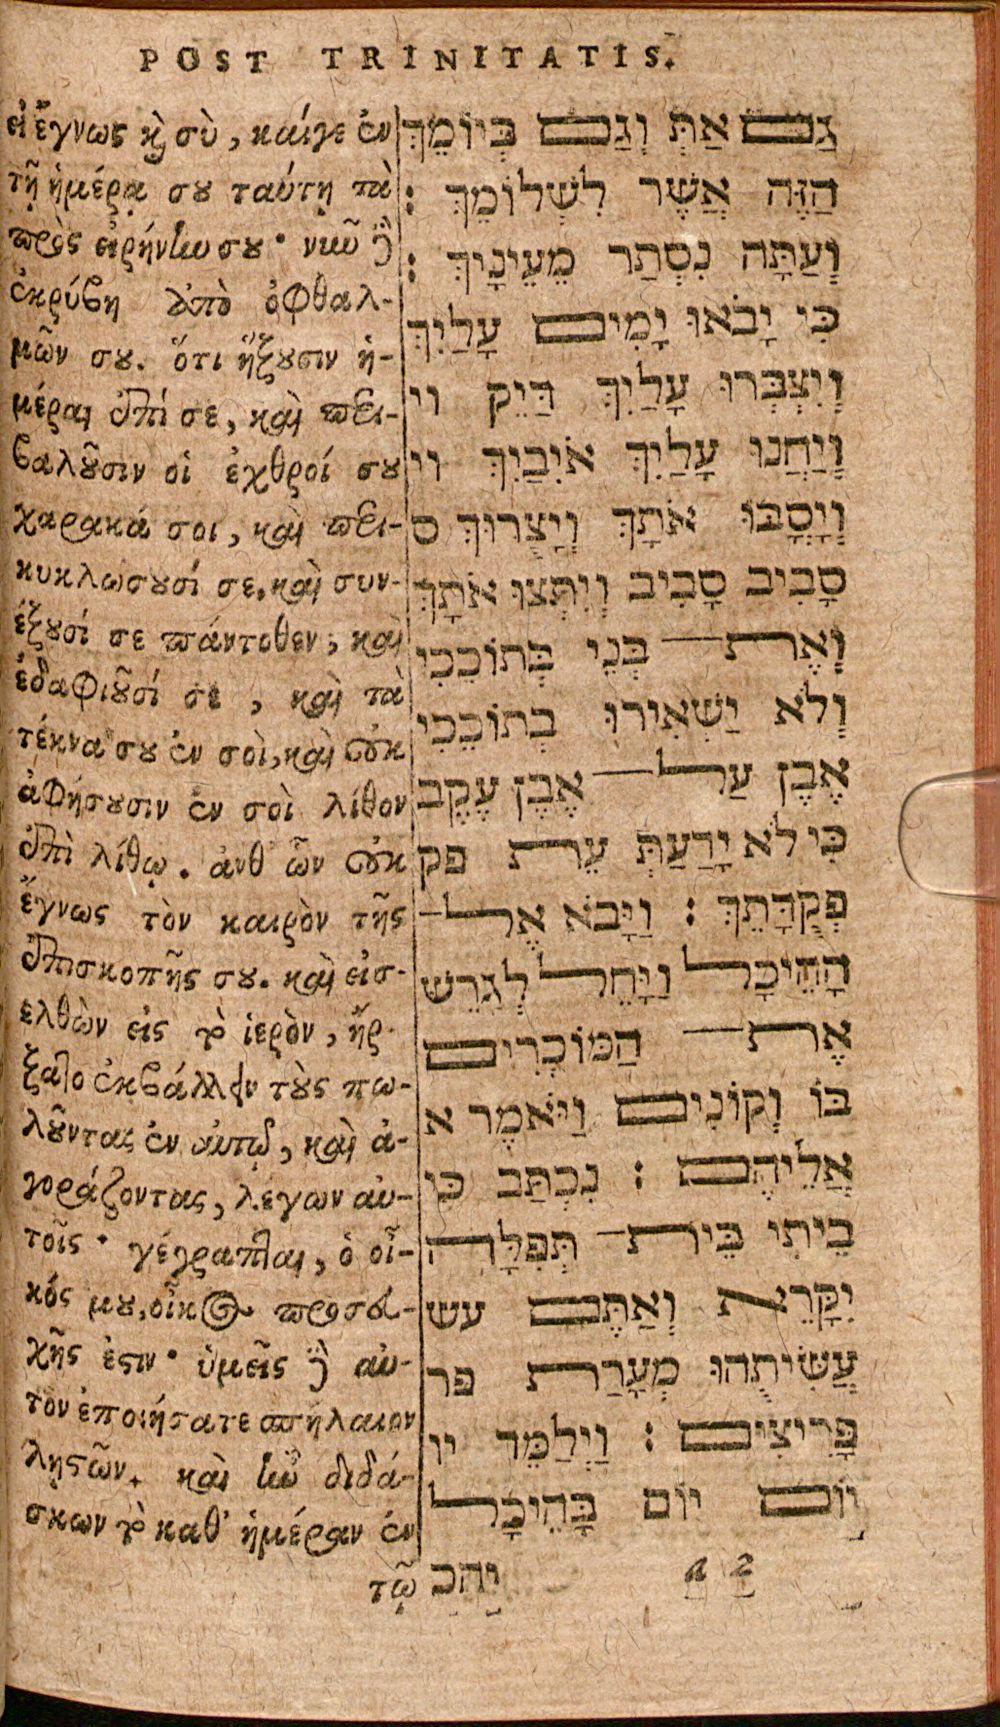 POST TRINITATIS.
εἰ ἔγνως καὶ σὺ, καίγε ἐν
τῇ ἡμέρᾳ σου ταύτῃ τὰ
πρὸς εἰρήνην σου· νῦν δὲ
ἐκρύβη ἀπὸ ὀφθαλ-
μῶν σου. ὅτι ἥξουσιν ἡ-
μέραι ἐπί σε, καὶ περι-
βαλοῦσιν οἱ ἐχθροί σου
χαρακά σοι, καὶ περι-
κυκλώσουσί σε, καὶ συν-
έξουσί σε πάντοθεν, καὶ
ἐδαφιοῦσί σε, καὶ τὰ
τέκνα σου ἐν σοὶ, καὶ οὐκ
ἀφήσουσιν ἐν σοὶ λίθον
ἐπὶ λίθῳ. ἀνθ' ὧν οὐκ
ἔγνως τὸν καιρὸν τῆς
ἐπισκοπῆς σου. καὶ εἰσ-
ελθὼν εἰς τὸ ἱερὸν, ἤρ-
ξατο ἐκβάλλειν τοὺς πω-
λοῦντας ἐν αὐτῷ, καὶ ἀ-
γοράζοντας, λέγων αὐ-
τοῖς· γέγραπται, ὁ οἶ-
κός μου, οἶκος προσευ-
χῆς ἐστιν· ὑμεῖς δὲ αὐ-
τὸν ἐποιήσατε σπήλαιον
λῃστῶν. καὶ ἦν διδά-
σκων τὸ καθ' ἡμέραν ἐν
τῷ
גַם אַתְּ וְגַם בְּיוֹמֵךְ
הַזֶּה אֲשֶׁר לִשְׁלוֹמֵךְ :
וְעַתָּה נִסְתַר מֵעֵינָיִךְ :
כִּי יָבֹאוּ יָמִים עָלַיִךְ
וְיִצְבְּרוּ עָלַיִךְ דַּיֵק וי
וְיַחֲנוּ עָלַיִךְ אֹיְבַיִךְ וי
וְיָסֻבּוּ אֹתָךְ וְיָצֻרוּךְ ס
סָבִיב סָבִיב וְיִתְּצוּ אֹתָךְ
וְאֶת בְּנֵי בְּתוֹכֵכִי
וְלֹא יַשְׁאִירוּ בְתוֹכֵכִי
אֶבֶן עַל אֶבֶן עֶקֶב
כִּי לֹא יָדַעַתְּ עֵת פק
פְּקֻדָּתֵךְ : וַיָּבֹא אֶל
הָהֵיכָל וַיָּחֶל לְגָרֵשׁ
אֶת הַמּוֹכְרִים
בּוֹ וְקוֹנִים וַיֹּאמֶר א
אֲלֵיהֶם : נִכְתַּב כִּי
בֵיתִי בֵּית תְּפִלָּה
יִקָּרֵא וְאַתֶּם עש
עֲשִׂיתֻהוּ מְעָרַת פר
פָּרִיצִים : וַיְלַמֵּד יו
יוֹם יוֹם בָּהֵיכָל
a 2